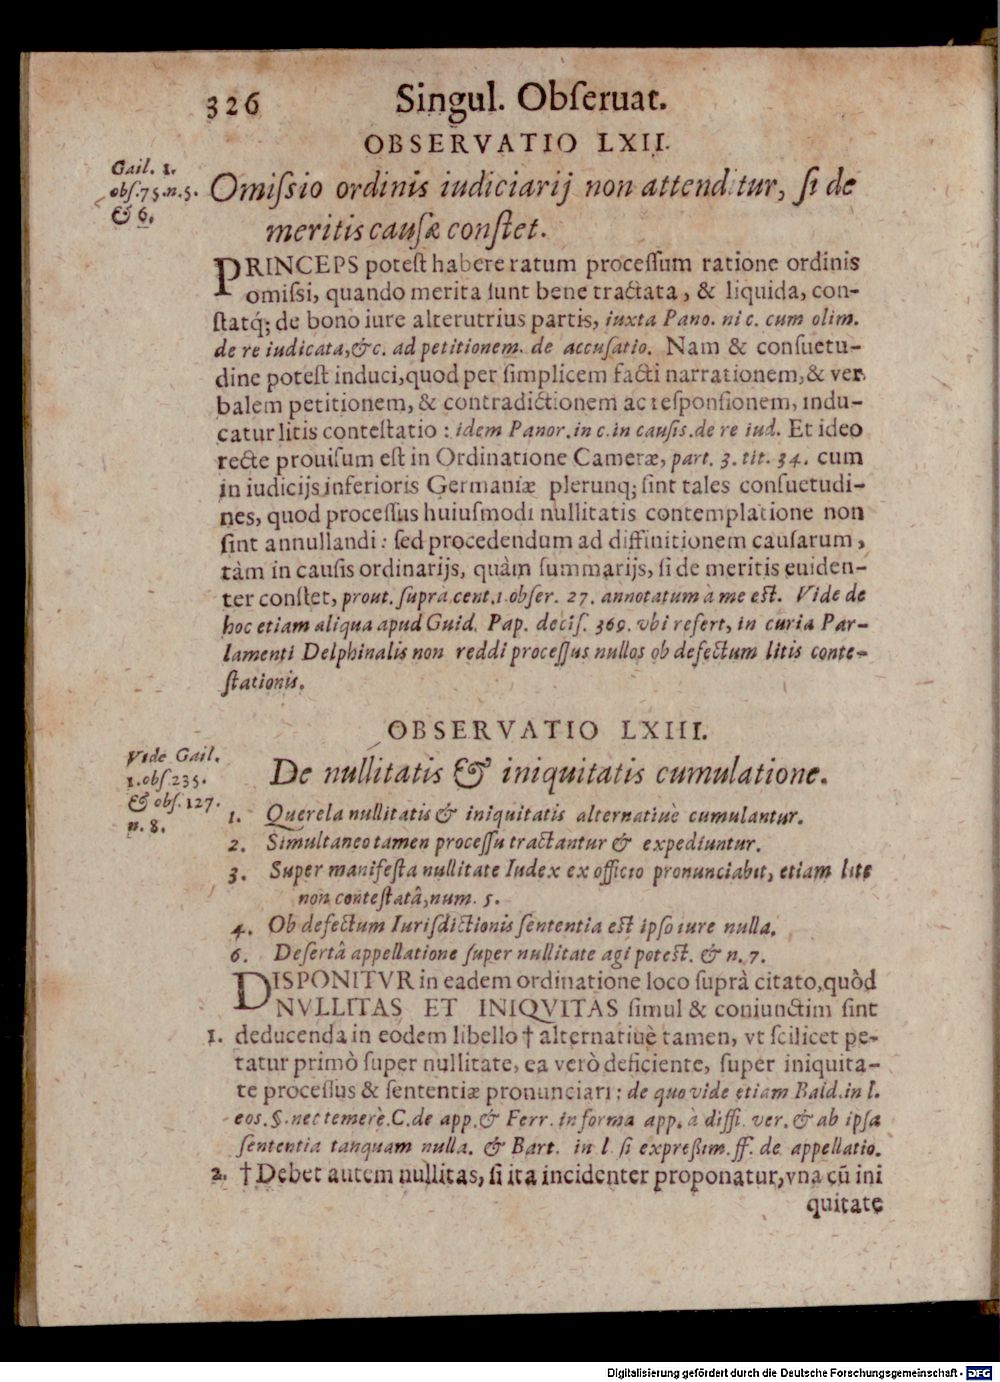 326 Singul. Obſeruat.
OBSERVATIO LXII.
Gail. 1.
obſ.75.n.5.
& 6.
Omiſsio ordinis iudiciarij non attenditur, ſi de
meritis cauſæ conſtet.
PRINCEPS poteſt habere ratum proceſſum ratione ordinis
omiſsi, quando merita ſunt bene tractata, & liquida, con-
ſtatq́; de bono iure alterutrius partis, iuxta Pano. ni c. cum olim.
de re iudicata,&c. ad petitionem. de accuſatio. Nam & conſuetu-
dine poteſt induci,quod per ſimplicem facti narrationem,& ver
balem petitionem, & contradictionem ac reſponſionem, indu-
catur litis conteſtatio : idem Panor.in c.in cauſis.de re iud. Et ideo
recte prouiſum eſt in Ordinatione Cameræ, part. 3. tit. 34. cum
in iudicijs inferioris Germaniæ plerunq; ſint tales conſuetudi-
nes, quod proceſſus huiuſmodi nullitatis contemplatione non
ſint annullandi: ſed procedendum ad diffinitionem cauſarum,
tàm in cauſis ordinarijs, quàm ſummarijs, ſi de meritis euiden-
ter conſtet, prout. ſuprà cent.1 obſer. 27. annotatum à me eſt. Vide de
hoc etiam aliqua apud Guid. Pap. deciſ. 369. vbi refert, in curia Par-
lamenti Delphinalis non reddi proceſſus nullos ob defectum litis conte-
ſtationis.
OBSERVATIO LXIII.
Vide Gail.
1.obſ 235.
& obſ. 127.
n. 8.
De nullitatis & iniquitatis cumulatione.
1. Querela nullitatis & iniquitatis alternatiuè cumulantur.
2. Simultaneo tamen proceſſu tractantur & expediuntur.
3. Super manifeſta nullitate Iudex ex officio pronunciabit, etiam lite
non conteſtatâ,num. 5.
4. Ob defectum Iuriſdictionis ſententia eſt ipſo iure nulla.
6. Deſertâ appellatione ſuper nullitate agi poteſt. & n. 7.
DISPONITVR in eadem ordinatione loco ſuprà citato,quòd
NVLLITAS ET INIQVITAS ſimul & coniunctim ſint
1. deducenda in eodem libello † alternatiuè tamen, vt ſcilicet pe-
tatur primò ſuper nullitate, ea verò deficiente, ſuper iniquita-
te proceſſus & ſententiæ pronunciari: de quo vide etiam Bald.in l.
eos.§.nec temerè.C.de app.& Ferr. in forma app. à diffi. ver. & ab ipſa
ſententia tanquam nulla. & Bart. in l. ſi expreßim.ff. de appellatio.
2. † Debet autem nullitas, ſi ita incidenter proponatur,vna cū ini
quitate
Digitalisierung gefördert durch die Deutsche Forschungsgemeinschaft - DFG